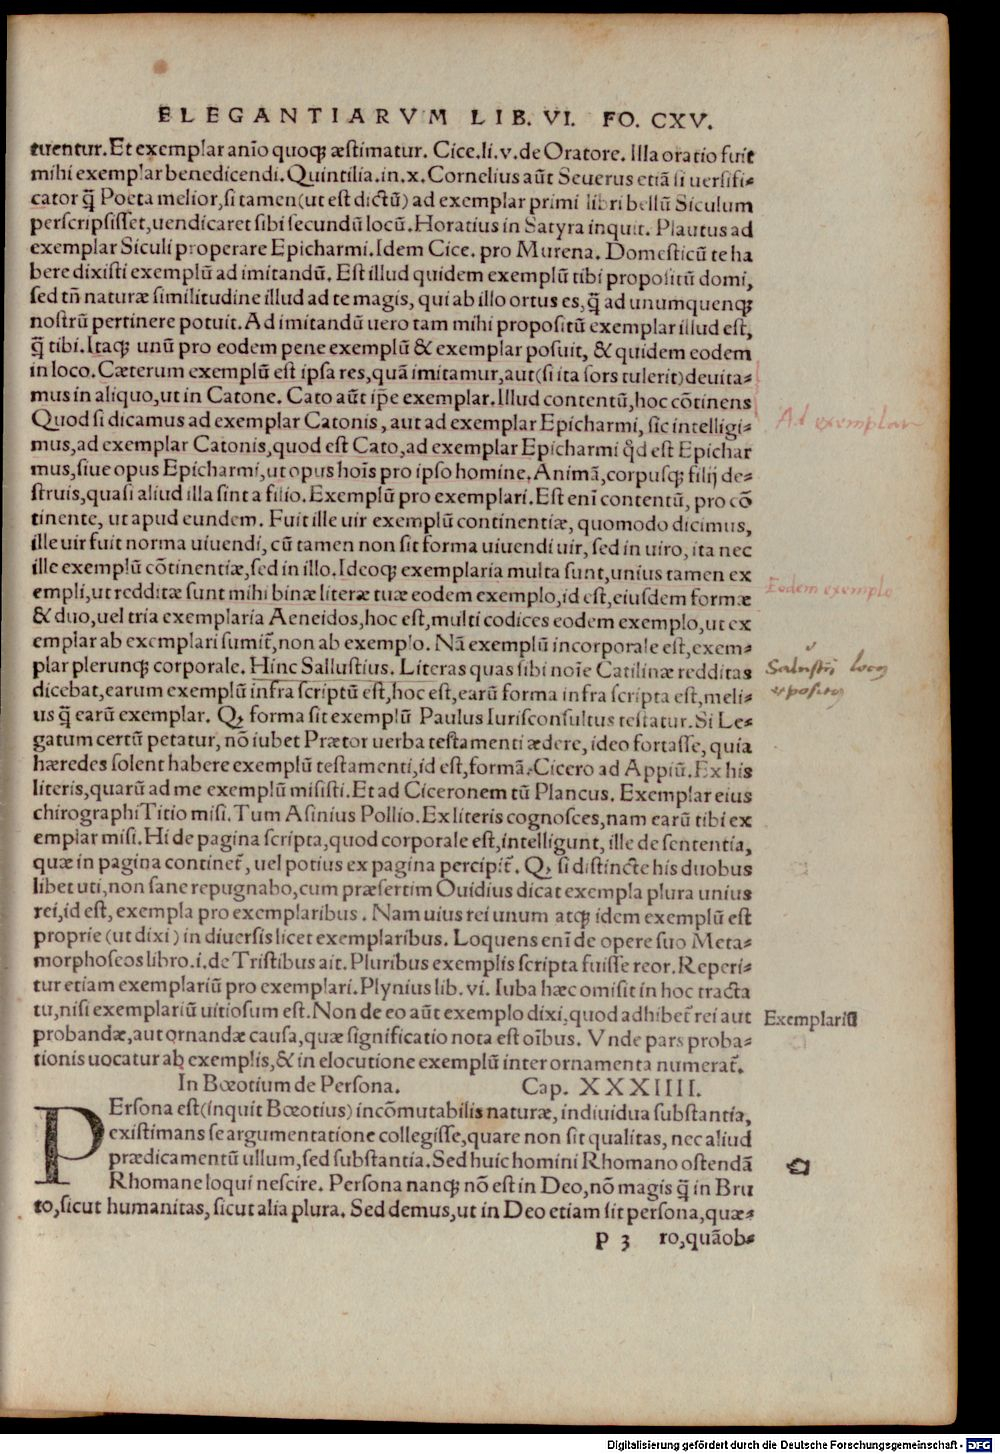 ELEGANTIARVM LIB. VI. FO. CXV.
tuentur. Et exemplar anĩo quoqȝ æstimatur. Cice. li. v. de Oratore. Illa oratio fuit
mihi exemplar benedicendi. Quintilia. in. x. Cornelius aũt Seuerus etiã si uersifi-
cator q̃ Poeta melior, si tamen (ut est dictũ) ad exemplar primi libri bellũ Siculum
perscripsisset, uendicaret sibi secundũ locũ. Horatius in Satyra inquit. Plautus ad
exemplar Siculi properare Epicharmi. Idem Cice. pro Murena. Domesticũ te ha
bere dixisti exemplũ ad imitandũ. Est illud quidem exemplũ tibi propositũ domi,
sed tñ naturæ similitudine illud ad te magis, qui ab illo ortus es, q̃ ad unumquenqȝ
nostrũ pertinere potuit. Ad imitandũ uero tam mihi propositũ exemplar illud est,
q̃ tibi. Itaqȝ unũ pro eodem pene exemplũ & exemplar posuit, & quidem eodem
in loco. Cæterum exemplũ est ipsa res, quã imitamur, aut (si ita sors tulerit) deuita-
mus in aliquo, ut in Catone. Cato aũt ip̃e exemplar. Illud contentũ, hoc cõtinens
Quod si dicamus ad exemplar Catonis, aut ad exemplar Epicharmi, sic intelligi-
mus, ad exemplar Catonis, quod est Cato, ad exemplar Epicharmi q̃d est Epichar
mus, siue opus Epicharmi, ut opus hoĩs pro ipso homine. Animã, corpusqȝ filij de-
struis, quasi aliud illa sint a filio. Exemplũ pro exemplari. Est enĩ contentũ, pro cõ
tinente, ut apud eundem. Fuit ille uir exemplũ continentiæ, quomodo dicimus,
ille uir fuit norma uiuendi, cũ tamen non sit forma uiuendi uir, sed in uiro, ita nec
ille exemplũ cõtinentiæ, sed in illo. Ideoqȝ exemplaria multa sunt, unius tamen ex
empli, ut redditæ sunt mihi binæ literæ tuæ eodem exemplo, id est, eiusdem formæ
& duo, uel tria exemplaria Aeneidos, hoc est, multi codices eodem exemplo, ut ex
emplar ab exemplari sumit̃, non ab exemplo. Nã exemplũ incorporale est, exem-
plar plerunqȝ corporale. Hinc Sallustius. Literas quas sibi noĩe Catilinæ redditas
dicebat, earum exemplũ infra scriptũ est, hoc est, earũ forma infra scripta est, meli-
us q̃ earũ exemplar. Qȝ forma sit exemplũ Paulus Iurisconsultus testatur. Si Le-
gatum certũ petatur, nõ iubet Prætor uerba testamenti ædere, ideo fortasse, quia
hæredes solent habere exemplũ testamenti, id est, formã. Cicero ad Appiũ. Ex his
literis, quarũ ad me exemplũ misisti. Et ad Ciceronem tũ Plancus. Exemplar eius
chirographi Titio misi. Tum Asinius Pollio. Ex literis cognosces, nam earũ tibi ex
emplar misi. Hi de pagina scripta, quod corporale est, intelligunt, ille de sententia,
quæ in pagina continet̃, uel potius ex pagina percipit̃. Qȝ si distincte his duobus
libet uti, non sane repugnabo, cum præsertim Ouidius dicat exempla plura unius
rei, id est, exempla pro exemplaribus. Nam uius rei unum atqȝ idem exemplũ est
proprie (ut dixi) in diuersis licet exemplaribus. Loquens enĩ de opere suo Meta-
morphoseos libro. i. de Tristibus ait. Pluribus exemplis scripta fuisse reor. Reperi-
tur etiam exemplariũ pro exemplari. Plynius lib. vi. Iuba hæc omisit in hoc tracta
tu, nisi exemplariũ uitiosum est. Non de eo aũt exemplo dixi, quod adhibet̃ rei aut
probandæ, aut ornandæ causa, quæ significatio nota est oĩbus. Vnde pars proba-
tionis uocatur ab exemplis, & in elocutione exemplũ inter ornamenta numerat̃.
In Bœotium de Persona. Cap. XXXIIII.
PErsona est (inquit Bœotius) incõmutabilis naturæ, indiuidua substantia,
existimans se argumentatione collegisse, quare non sit qualitas, nec aliud
prædicamentũ ullum, sed substantia. Sed huic homini Rhomano ostendã
Rhomane loqui nescire. Persona nanqȝ nõ est in Deo, nõ magis q̃ in Bru
to, sicut humanitas, sicut alia plura. Sed demus, ut in Deo etiam sit persona, quæ-
p 3 ro, quãob-
Ad exemplar
Eodem exemplo
Salustii locus
expositus
Exemplariũ
Digitalisierung gefördert durch die Deutsche Forschungsgemeinschaft - DFG